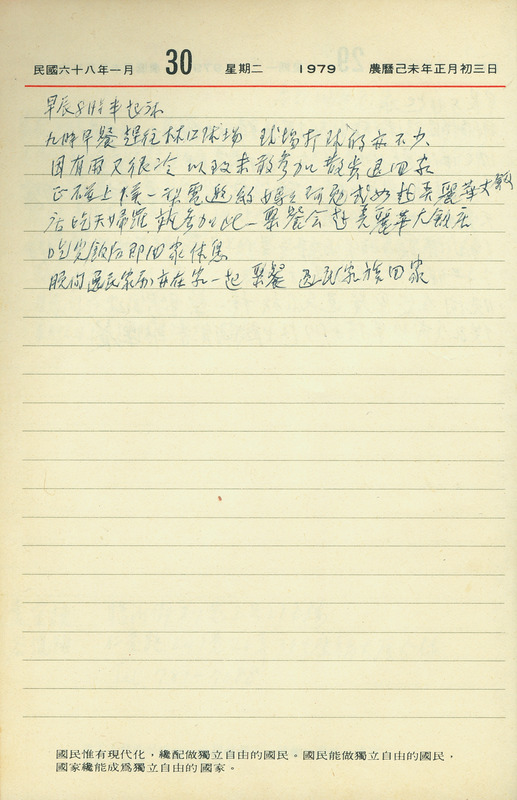 民國六十八年一月 30 星期二 1979 農曆己未年正月初三日
早晨8時半起床
九時早餐 趕往林口球場 球場打球的亦不少
因有雨又很冷 以致未敢參加 散步退回家
正碰上 電 約 赴美麗華大飯
店吃 參加此一聚餐會 赴美麗華大飯店
吃完飯後即回家休息
晚間 在家一起聚餐 回家
國民惟有現代化，纔配做獨立自由的國民。國民能做獨立自由的國民，
國家纔能成爲獨立自由的國家。